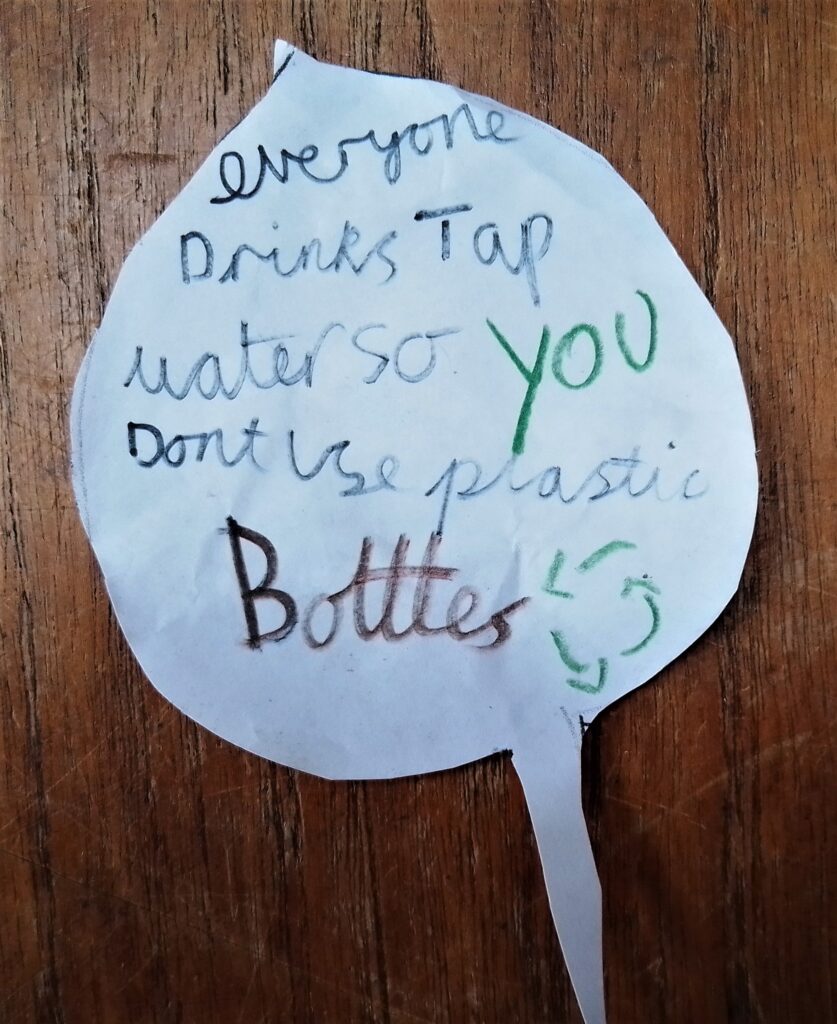 everyone
Drinks Tap
water so YOU
Dont Use plastic
Botttes